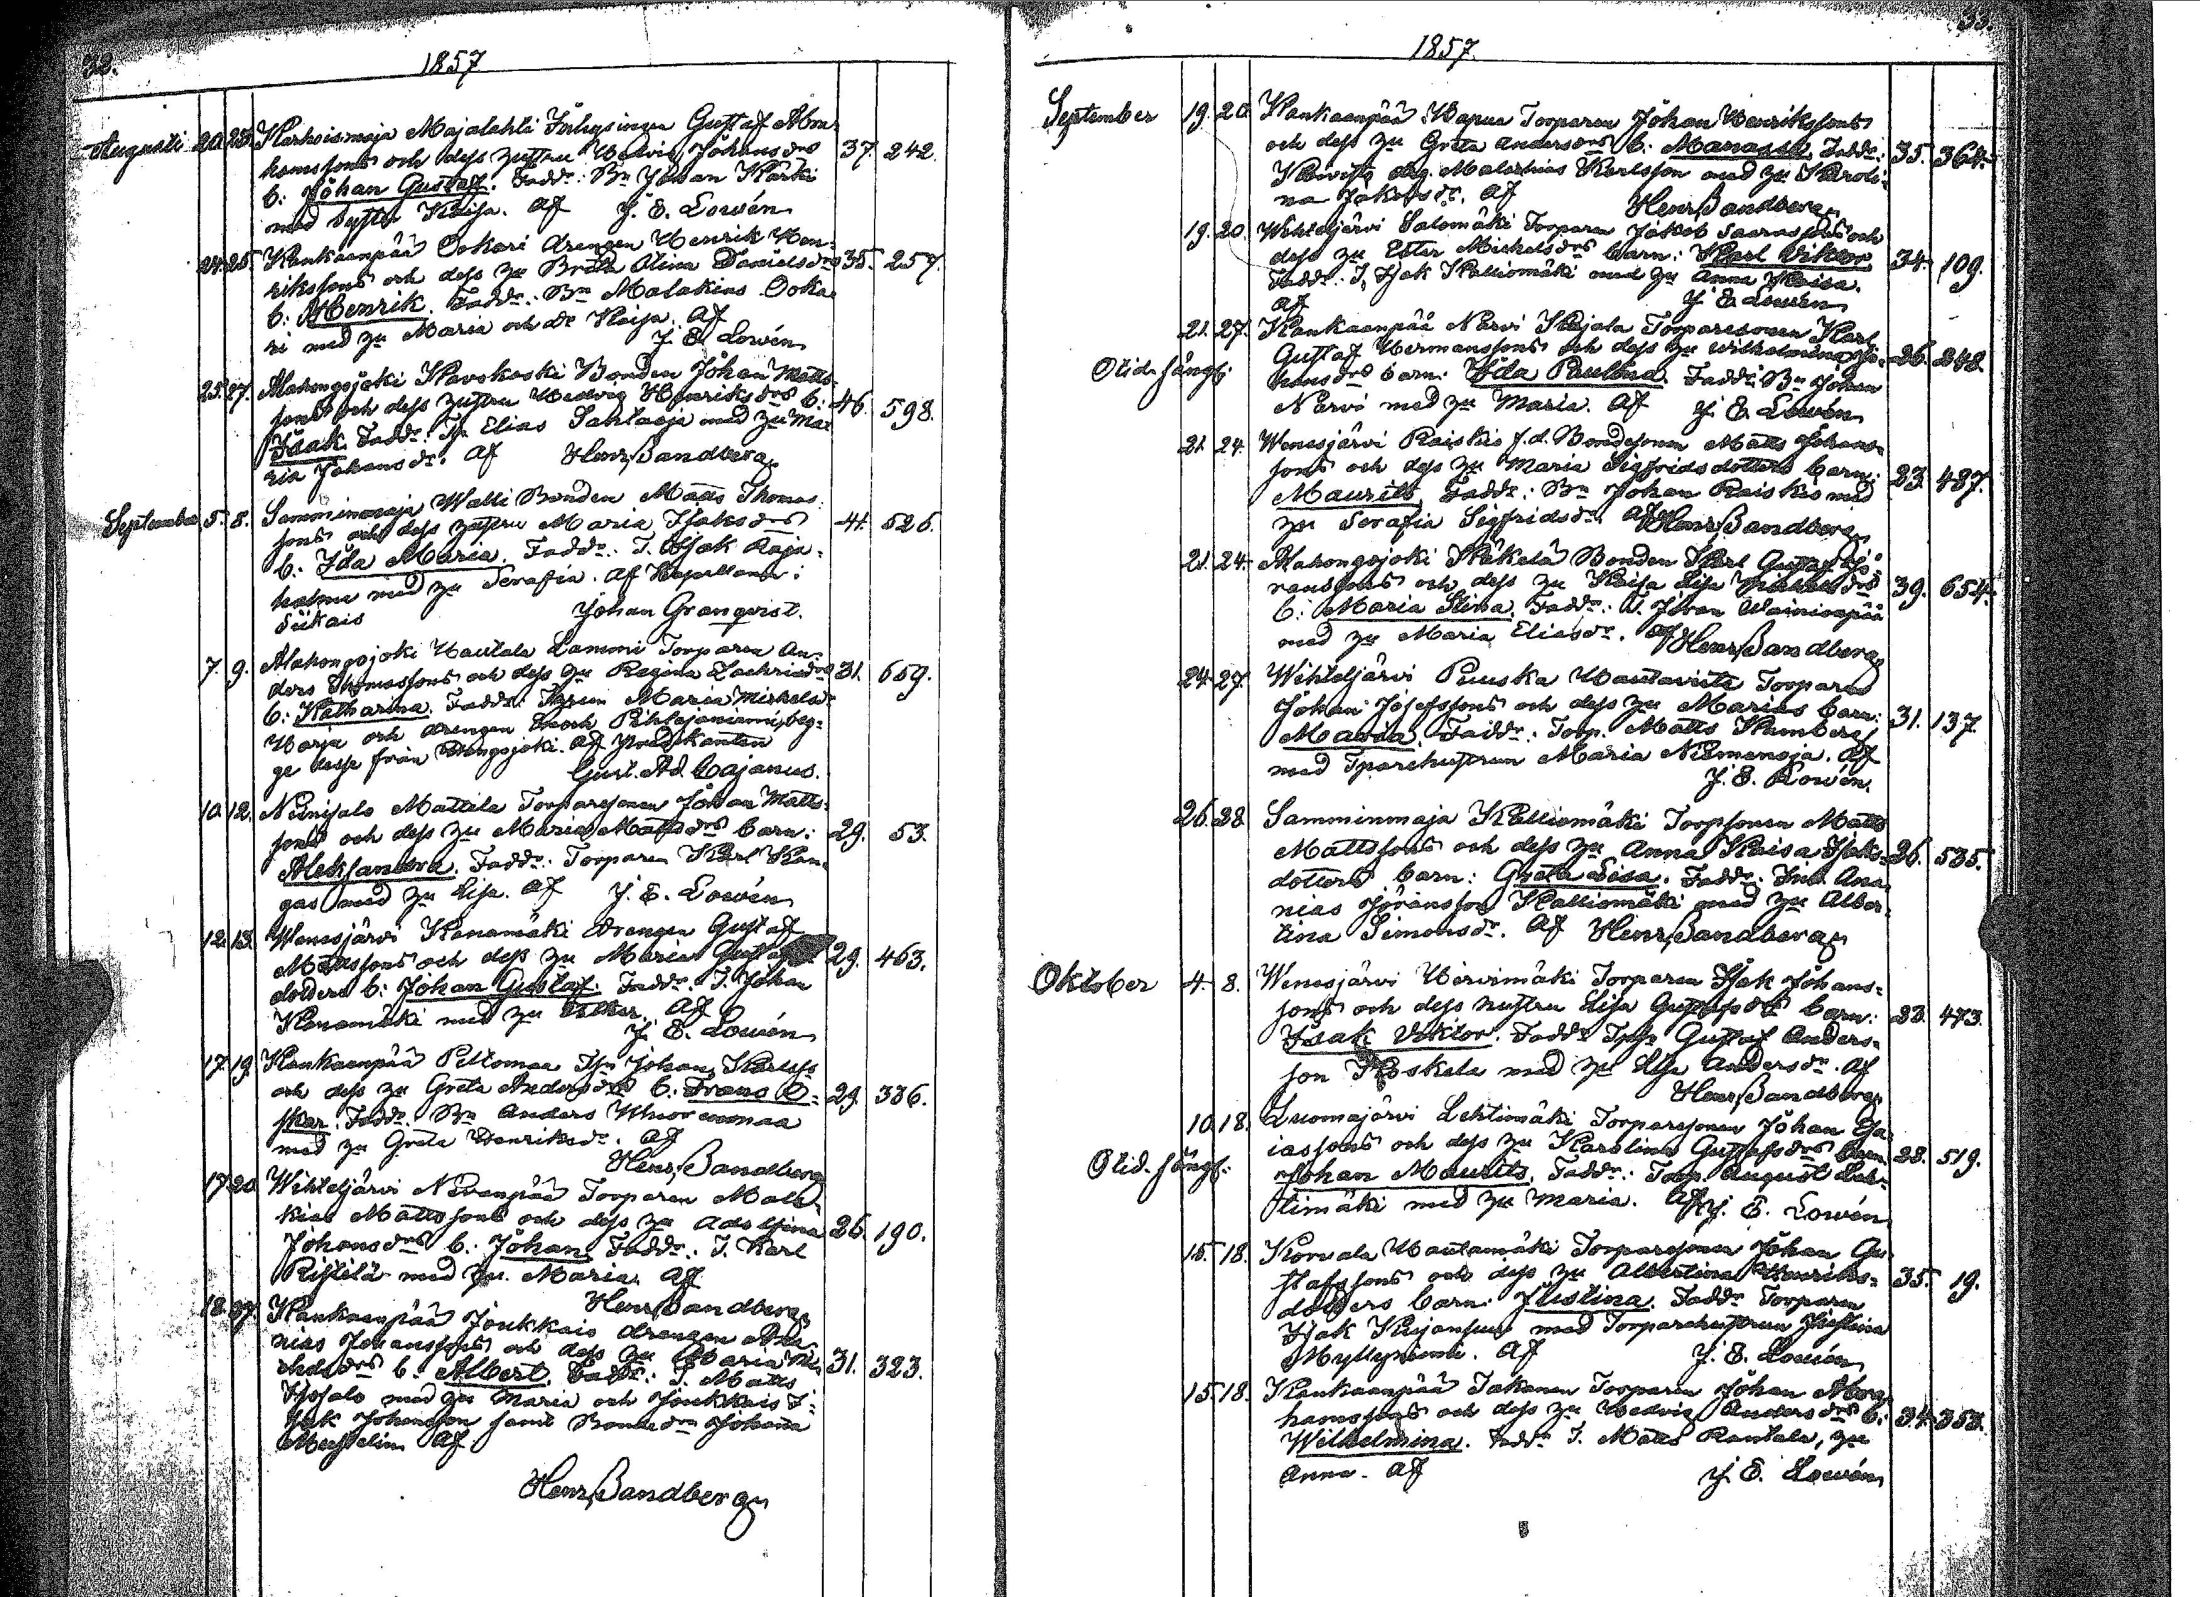 32.
1857
Augusti 20. 23. Karhoismaja Majalahti Inhysingen Gustaf Abra-
hamssons och dess hustru Hedvig Johansdrs 37. 242.
b: Johan Gustaf. Fadd: Bn Johan Karki
med syster Kaisa. Af J. E. Lowén
24. 25. Kankaanpää Ookari drengen Henrik Hen-
rikssons och dess hu Brita Stina Danielsdrs 35. 257.
b: Henrik. Fadd: Bn Malakias Ooka-
ri med hu Maria och dr Kaisa. Af
J. E. Lowén
25. 27. Alahongojoki Bonden Johan Matts-
sons och dess hustru Hedvig Henriksdrs b: 46. 598.
Isak. Fadd: Elias med hu Ma-
ria Johansdr. Af Henr. Sandberg
September 5. 8. Samminmaja Walli Bonden Matts Thomas-
sons och dess hustru Maria Isaksdrs 41. 526.
b: Ida Maria. Fadd: T. Isak Raja-
holma med hu Serafia. Af Kapellanen i
Siikais Johan Granqvist.
7. 9. Alahongojoki Hautala Lammi Torparen An-
ders Thomassons och dess hu Regina Zachrisdrs 31. 659.
b: Katharina. Fadd: Maria Michelsdr
Harja och drengen Enoch Pihlajaniemi, beg-
ge desse från Hongojoki. Af Predikanten
Gust. Ad. Cajanus.
10. 12. Niinisalo Mattila Torparesonen Johan Matts-
sons och dess hu Maria Mattsdrs barn: 29. 53.
Aleksandra. Fadd: Torparen Karl Kan-
gas med hu Lisa. Af J. E. Lowén
12. 13. Wenesjärvi Kanamäki drengen Gustaf
Mattssons och dess hu Maria Gustafs- 29. 463.
dotters b: Johan Gustaf. Fadd: T. Johan
Kanamäki med hu Esther. Af
J. E. Lowén
17. 19. Kankaanpää Peltomaa Johan Karlss
och dess hu Greta Andersdrs b: Frans O- 29. 336.
skar. Fadd: Bn Anders Wuorenmaa
med hu Greta Henriksdr. Af
Henr. Sandberg
17. 20. Wihteljärvi Nevanpää Torparen Mala-
kias Mattssons och dess hu Adolfina 26. 190.
Johansdrs b: Johan. Fadd: T. Karl
Ristilä med hu Maria. Af
Henr. Sandberg
18. 27. Kankaanpää Joukkais drengen Ana-
nias Johanssons och dess hu Maria Mi-
chelsdrs b: Albert. Fadd: T. Matts 31. 323.
Isosalo med hu Maria och Joukkais I-
sak Johansson samt Bondedrn Johanna
Af
Henr. Sandberg
33.
1857.
September 19. 20. Kankaanpää Wapua Torparen Johan Henrikssons
och dess hu Greta Andersdrs b: Manasse. Fadd: 35. 364.
Malachias Karlsson med hu Karoli-
na Jakobsdr. Af Henr. Sandberg
19. 20. Wihteljärvi Salomäki Torparen Jakob och
dess hu Ester Michelsdrs barn: Karl Viktor. 34. 109.
Fadd: T. Isak Kalliomäki med hu Anna Kaisa.
Af J. E. Lowén
21. 27. Kankaanpää Närvi Kujala Torparesonen Karl
Otid. sängf. Gustaf Hermanssons och dess hu Wilhelmina Jo- 26. 248.
hansdrs barn: Ida Paulina. Fadd: Bn Johan
Närvi med hu Maria. Af J. E. Lowén
21. 24. Wenesjärvi Raiskio f.d. Bondesonen Matts Johans-
sons och dess hu Maria Sigfridsdotters barn: 23. 487.
Maurits. Fadd: Bn Johan Raiskio med
hu Serafia Sigfridsdr. Af Henr. Sandberg
21. 24. Alahongojoki Käkelä Bonden Karl Gustaf Gö-
ranssons och dess hu Kaisa Lisa drs 39. 654.
b: Maria Stina. Fadd: T. Johan Wainionpää
med hu Maria Eliasdr. Af Henr. Sandberg
24. 27. Wihteljärvi Puuska Hautaviita Torparen
Johan Josefssons och dess hu Marias barn: 31. 137.
Maria. Fadd: Torp. Matts Kumberg
med Tparehustrun Maria Niemenoja. Af
J. E. Lowén.
26. 28. Samminmaja Kalliomäki Torpsonen Matts
Mattssons och dess hu Anna Kaisa Isaks- 26. 535.
dotters barn: Greta Lisa. Fadd: Inh. Ana-
nias Göransson Kalliomäki med hu Alber-
tina Simonsdr. Af Henr. Sandberg
Oktober 4. 8. Wenesjärvi Hirvimäki Torparen Isak Johans-
sons och dess hustru Lisa Gustafsdrs barn: 23. 473.
Isak Viktor. Fadd: Gustaf Anders-
son Koskela med hu Lisa Andersdr. Af
Henr. Sandberg
10. 18. Luomajärvi Lehtimäki Torparesonen Johan Esa-
Otid. sängf: iassons och dess hu Karolina Gustafsdrs barn 28. 519.
Johan Maurits. Fadd: Torp. August Leh-
timäki med hu Maria. Af J. E. Lowén
15. 18. Korvala Hautamäki Torparesonen Johan Gu-
stafssons och dess hu Albertina Henriks- 35. 19.
dotters barn: Justina. Fadd: Torparen
Isak Kujansuu med Torparehustrun Justina
Myllyniemi. Af J. E. Lowén
15. 18. Kankaanpää Takanen Torparen Johan Abra-
hamssons och dess hu Hedvig Andersdrs b: 34. 353.
Wilhelmina. Fadd: T. Matts Rantala, hu
Anna. Af J. E. Lowén